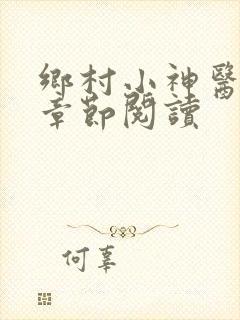 鄉村小神醫
章節閱讀
何辜